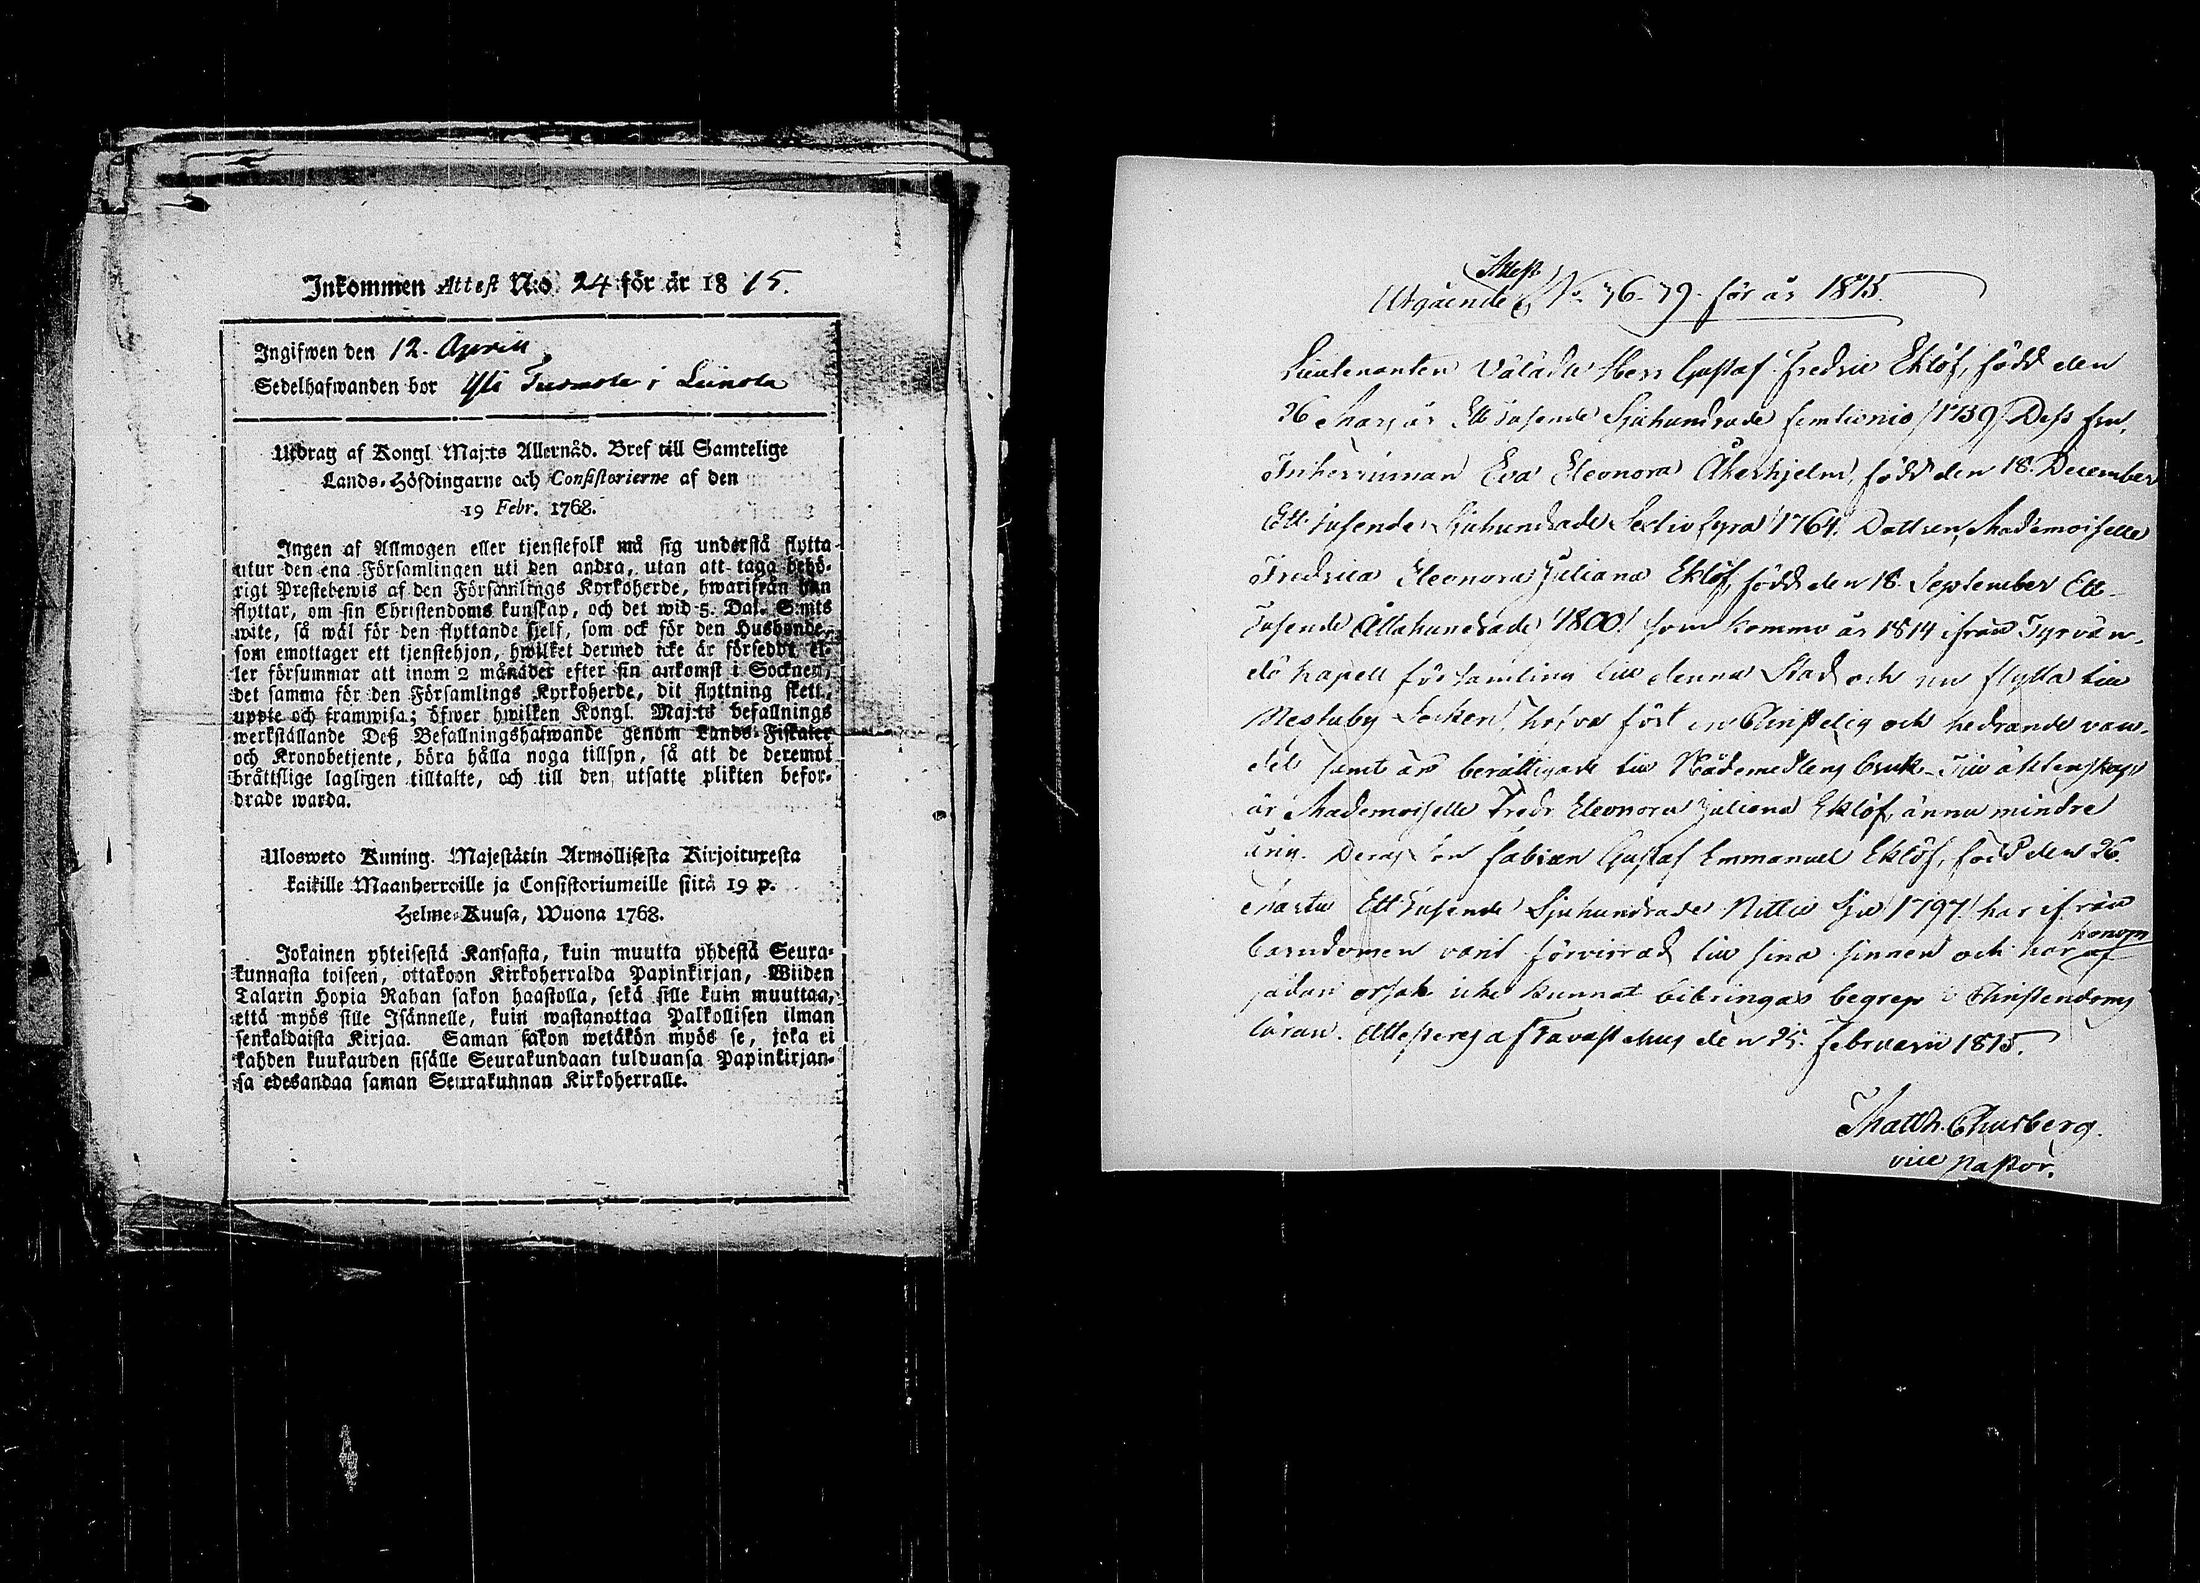 Inkommen Attest N:o 24 för år 1815.
Ingifwen den 12. Aprill
Sedelhafwanden bor Yli Turmola i Liinola
Utdrag af Kongl. Maj:ts Allernåd. Bref till Samtelige
Lands-Höfdingarne och Consistorierne af den
19 Febr. 1768.
Ingen af Allmogen eller tjenstefolk må sig understå flytta
utur den ena Församlingen uti den andra, utan att taga behö-
rigt Prestebewis af den Församlings Kyrkoherde, hwarifrån han
flyttar, om sin Christendoms kunskap, och det wid 5. Dal. S:mts
wite, så wäl för den flyttande sjelf, som ock för den Husbonde,
som emottager ett tjenstehjon, hwilket dermed icke är försedt, el-
ler försummar att inom 2 månader efter sin ankomst i Socknen,
det samma för den Församlings Kyrkoherde, dit flyttning skett,
uppte och framwisa; öfwer hwilken Kongl. Maj:ts befallnings
werkställande Deß Befallningshafwande genom Lands-Fiskaler
och Kronobetjente, böra hålla noga tillsyn, så att de deremot
bråttslige lagligen tilltalte, och till den utsatte plikten befor-
drade warda.
Ulosweto Kuning. Majestätin Armollisesta Kirjoituxesta
kaikille Maanherroille ja Consistoriumeille siitä 19 p.
Helme-Kuusa, Wuona 1768.
Jokainen yhteisestä Kansasta, kuin muutta yhdestä Seura-
kunnasta toiseen, ottakoon Kirkoherralda Papinkirjan, Wiiden
Talarin Hopia Rahan sakon haastolla, sekä sille kuin muuttaa,
että myös sille Isännelle, kuin wastanottaa Palkollisen ilman
senkaldaista Kirjaa. Saman sakon wetäkön myös se, joka ei
kahden kuukauden sisälle Seurakundaan tulduansa Papinkirjan-
sa edesandaa saman Seurakunnan Kirkoherralle.
Attest
Utgående N:o 76-79. för år 1815.
Lieutenanten Välädle Herr Gustaf Fredric Eklöf, född den
26 Mars år Ett Tusende Sjuhundrade femtionio /1759/ Dess fru,
Friherrinnan Eva Eleonora Åkerhjelm, född den 18. December
Ett Tusende Sjuhundrade Sextio fyra /1764. Dottren, Mademoiselle
Fredrica Eleonora Juliana Eklöf, född den 18 September Ett
Tusende Åttahundrade /1800/ som kommo år 1814 ifrån Tyrvän-
dö Kapell församling till denna Stad och nu flytta till
Nestuby Socken, hafva fört en Christelig och hedrande van-
del samt äro berättigade till Nådemedlens bruk. Till äktenskap
är Mademoiselle Fredr. Eleonora Juliana Eklöf, ännu mindre
årig. Deras son Fabian Gustaf Emmanuel Eklöf, född den 26.
Martii Ett Tusende Sjuhundrade Nittio Sju /1797/ har ifrån
barndomen varit förvirrad till sina sinnen och har af
honom
sådan orsak icke kunnat bibringas begrep i Christendoms
läran. Attesteras af Tavastehus den 25. Februarii 1815.
Matth. Chusberg.
vice pastor.